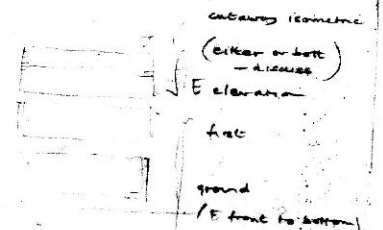 cutaway isometric
(either or both
- discuss)
E elevation
first
ground
(E front to bottom)